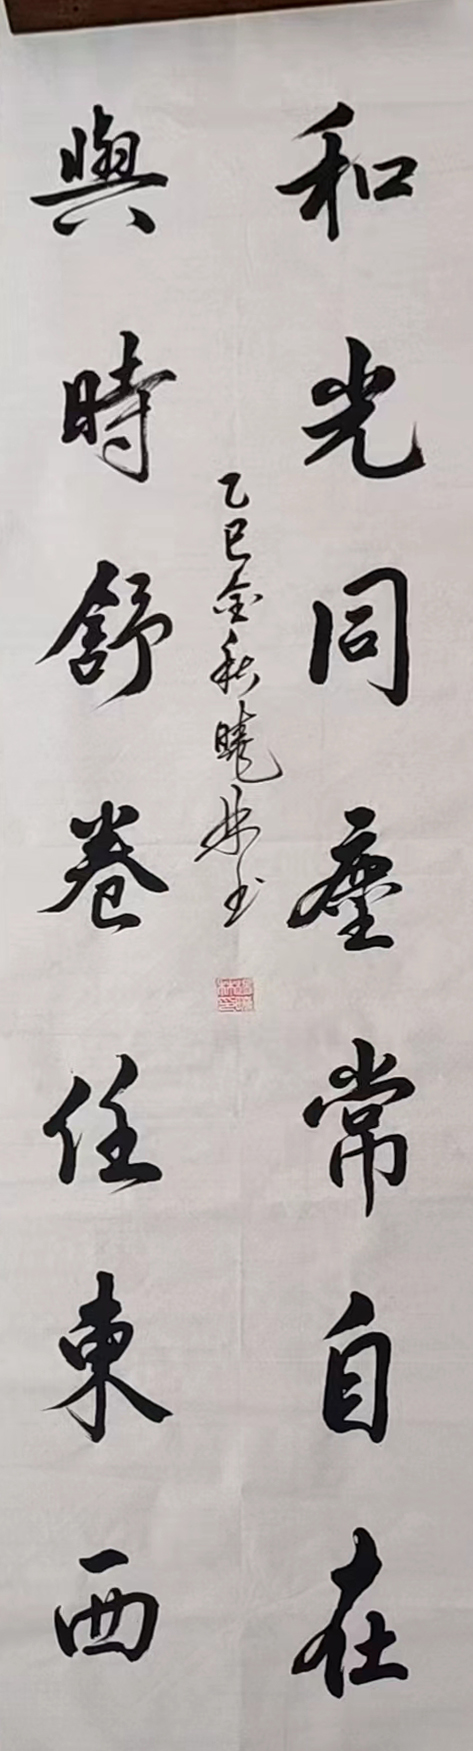 和光同塵常自在
與時舒卷任東西
乙巳金秋曉林书